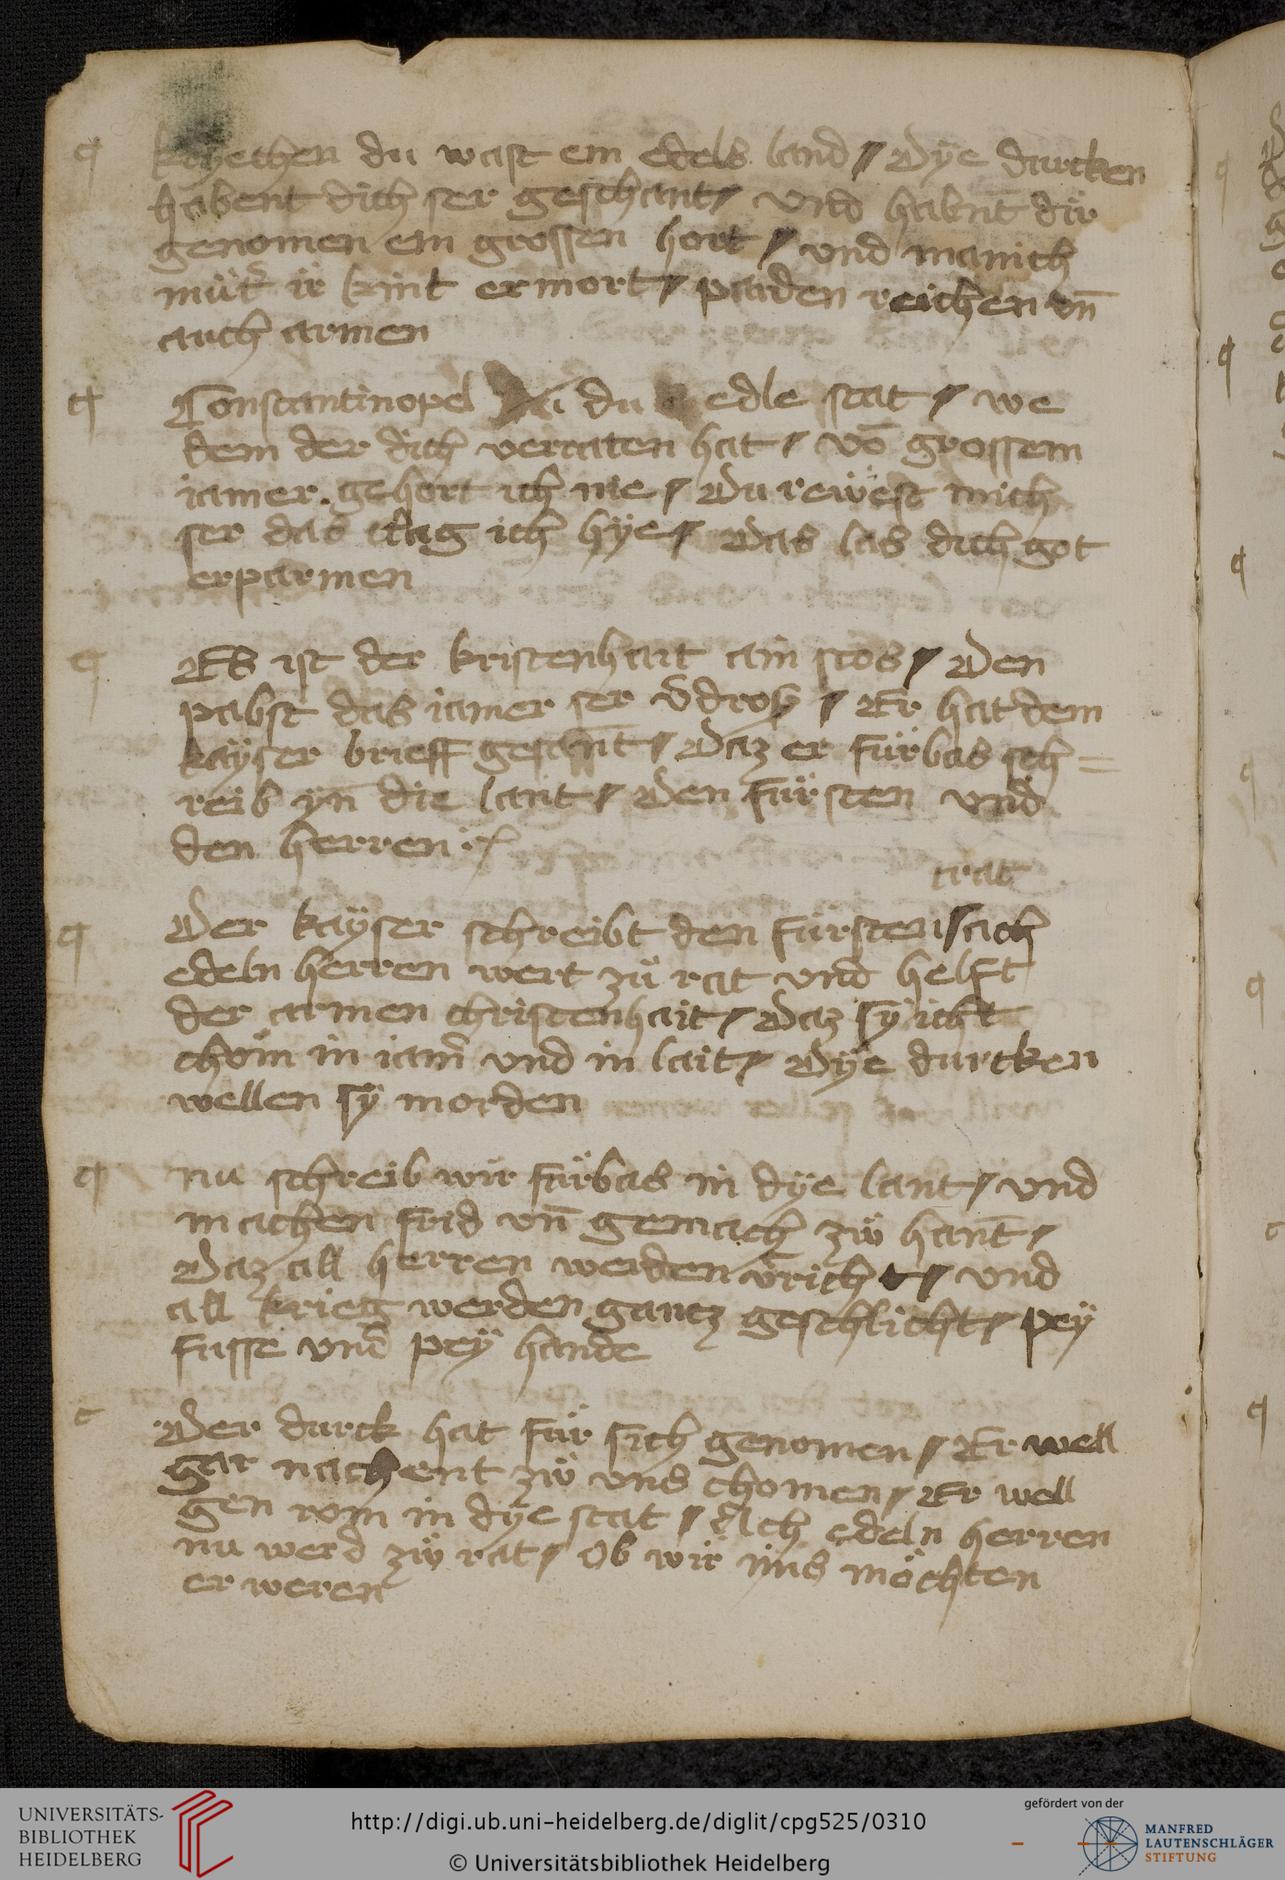 ¶ kryechen du wast ein edels land / Dÿe durcken
habent dich ser geschant / vnd habnt dir
genomen ein grossen hort / vnd manich
müt̉ ir kint ermort / paiden reichen vn̄
auch armen
¶ Constantinopel du edle stat / we
dem der dich verraten hat / vō grossem
iamer gehort ich nie / Du rewest mich
ser das clag ich hÿe / Das las dich got
erparmen
¶ Es ist der kristenhait ain stos / Den
pabst das iamer ser v̄dros / Er hat dem
kaÿser brieff gesānt / Daz er fürbas sch=
reib ÿn die lant / Den fürsten vnd
den herren
trat
¶ Der kaÿser schreibt den fürsten / ach
edeln herren wert zü rat vnd helft
der armen christenhait / Daz sÿ icht
chom in iam̉ vnd in lait / Dÿe durcken
wellen sÿ morden
¶ nu schreib wir fürbas in dÿe lant / vnd
machen frid vn̄ gemach zw hant /
Daz all herren werden v̄richt / vnd
all krieg werden gantz geschlicht / peÿ
fusse vnd peÿ hande
Der durck hat für sich genomen / Er well
gar nachent zw vns chomen / Er well
gen rom in dÿe stat / Ach edeln herren
nu werd zw rat / Ob wir ims möchten
erweren
UNIVERSITÄTS-
BIBLIOTHEK
HEIDELBERG
http://digi.ub.uni-heidelberg.de/diglit/cpg525/0310
© Universitätsbibliothek Heidelberg
gefördert von der
MANFRED
LAUTENSCHLÄGER
STIFTUNG